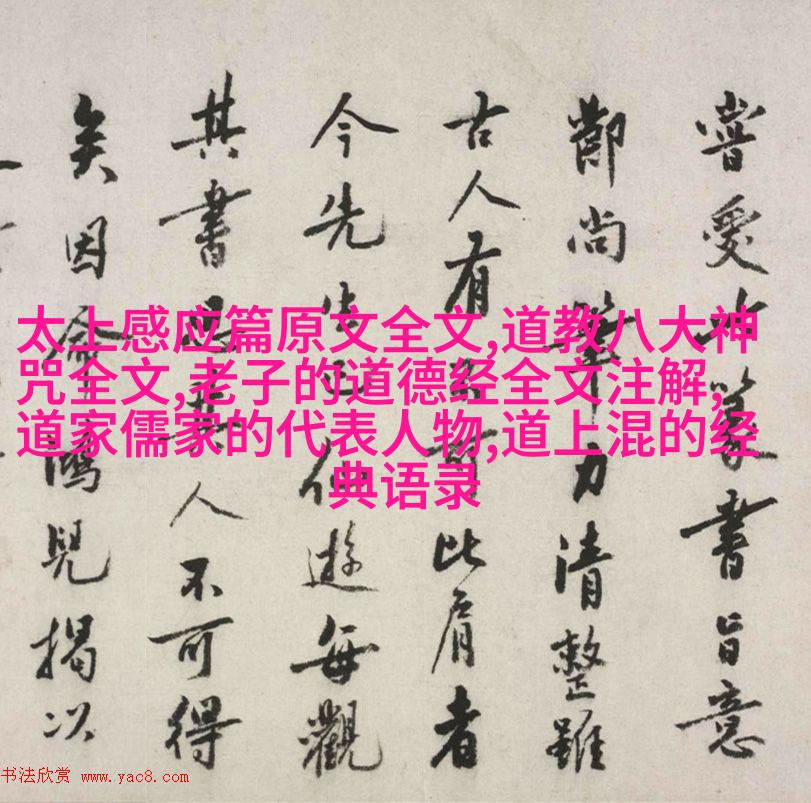 太上感应篇原文全文,道教八大神
咒全文,老子的道德经全文注解,
道家儒家的代表人物,道上混的经
典语录
篆書旨意
尚筆力清整雖
古人有可比肩者
今先生仙遊每觀
其書思其人不可得
矣因鴻兒揭以
书法欣赏 www.yac8.com